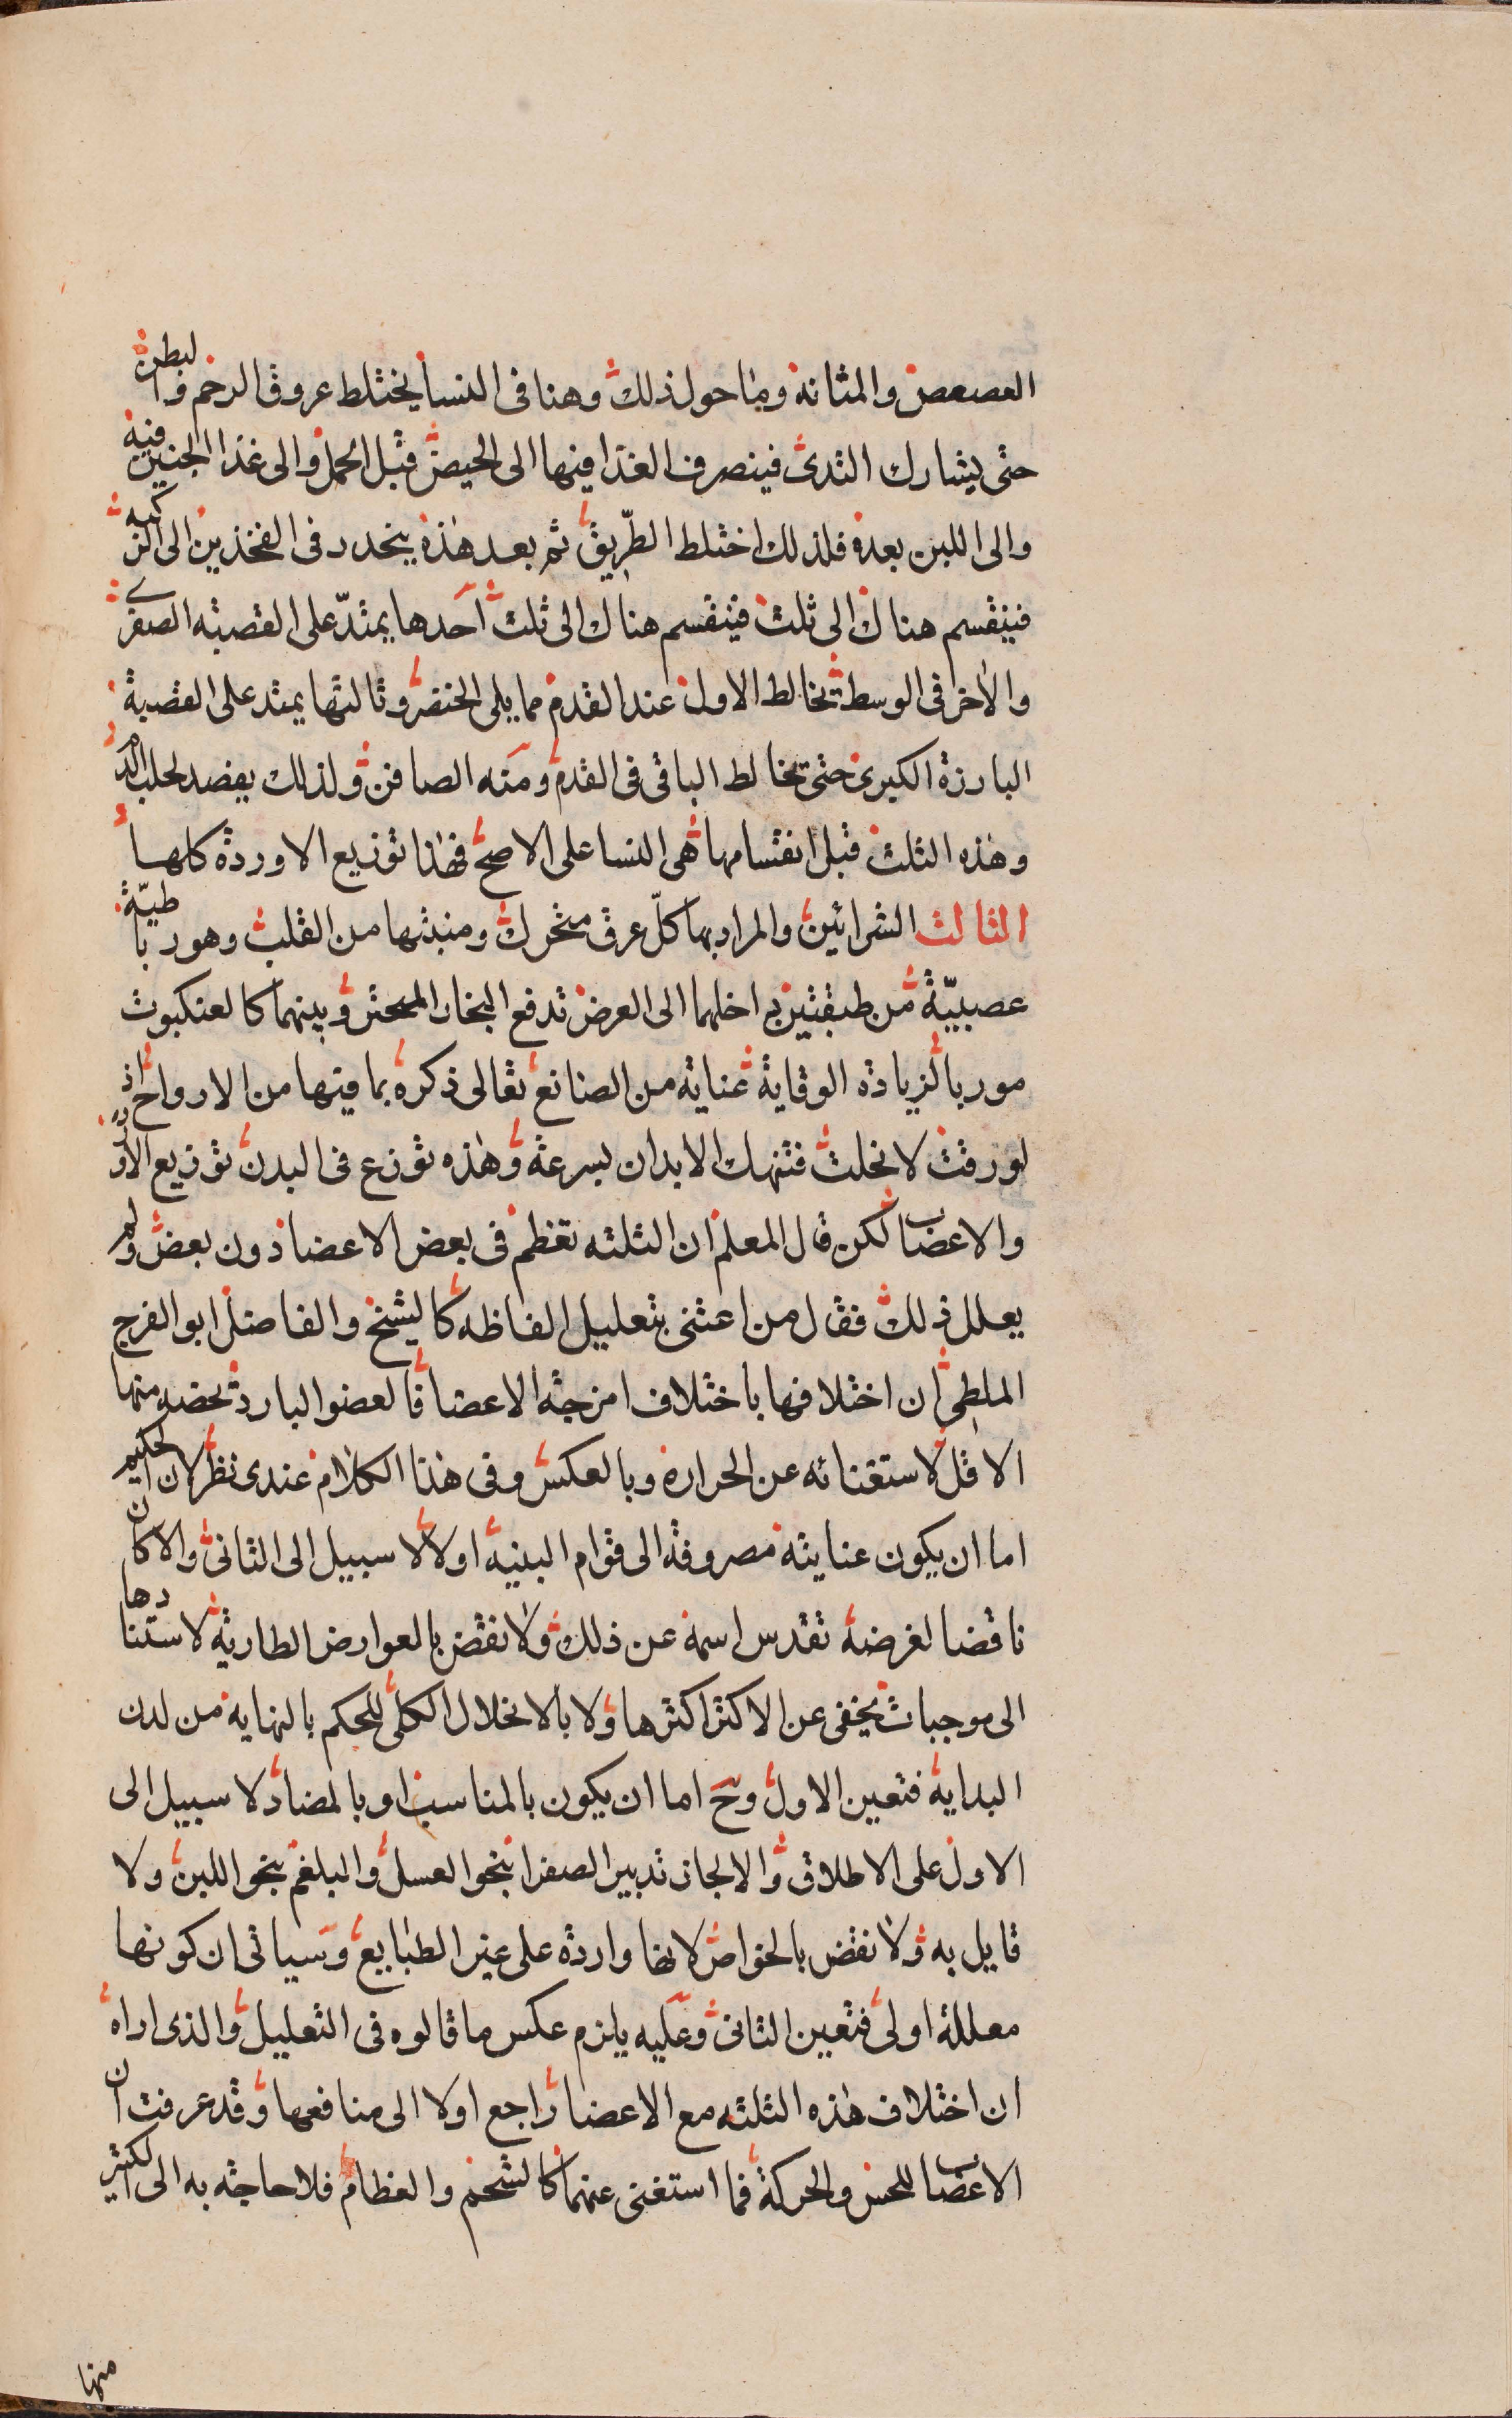 العصعص والمثانة وما حول ذلك وهنا فى النسا يختلط عروق الرحم والبطن
حتى يشارك الثدى فينصرف الغذا فيها الى الحيض قبل الحمل والى غذا الجنين فيه
والى اللبن بعده فلذلك اختلط الطريق ثم بعد هذه ينحدر فى الفخذين الى الركبة
فينقسم هناك الى ثلث فينقسم هناك الى ثلث احدها يمتدّ على القصبته الصغرى
والاخر فى الوسط يخالط الاول عند القدم مما يلى الخنصر وثالثها يمتد على القصبة
البارزة الكبرى حتى تخالط الباقى فى القدم ومنه الصافن ولذلك يفصد لجلب الدم
وهذه الثلث قبل انقسامها هى النسا على الاصح فهذا توزيع الاوردة كلها
الثالث الشرائين والمراد بها كلّ عرق متحرك ومنبتها من القلب وهو رباطيّة
عصبيّة من طبقتين داخلهما الى العرض تدفع البخار المحتر وبينهما كالعنكبوت
موربا لزيادة الوقاية عناية من الصانع تعالى ذكره بما فيها من الارواح اذ
لو رقت لانحلت فتنهك الابدان بسرعة وهذه توزع فى البدن توزيع الاوردة
والاعصاب لكن قال المعلم ان الثلثه تعظم فى بعض الاعضا دون بعض ولم
يعلل ذلك فقال من اعتنى بتعليل الفاظه كالشيخ والفاضل ابو الفرج
الملطى ان اختلافها باختلاف امزجة الاعضا فالعضو البارد يخصه منها
الاقل لاستغنائه عن الحرارة وبالعكس وفى هذا الكلام عندى نظر لان الحكيم
اما ان يكون عنايته مصروفة الى قوام البنية اولا لا سبيل الى الثانى والا كان
ناقضا لغرضه تقدس اسمه عن ذلك ولا نقض بالعوارض الطارية لاستنادها
الى موجبات يخفى عن الاكثر اكثرها ولا بالانحلال الكلى للحكم بالنهاية من لدن
البداية فتعين الاول وح اما ان يكون بالمناسب او بالمضاد لا سبيل الى
الاول على الاطلاق والا لجاز تدبير الصفرا بنحو العسل والبلغم بنحو اللبن ولا
قايل به ولا نقض بالخواص لانها واردة على غير الطبايع وسياتى ان كونها
معللة اولى فتعين الثانى وعليه يلزم عكس ما قالوه فى التعليل والذى اراه
ان اختلاف هذه الثلثه مع الاعضا راجع اولا الى منافعها وقد عرفت ان
الاعصاب للحس والحركة فما استغنى عنهما كالشحم والعظام فلا حاجة به الى الكثير
منها